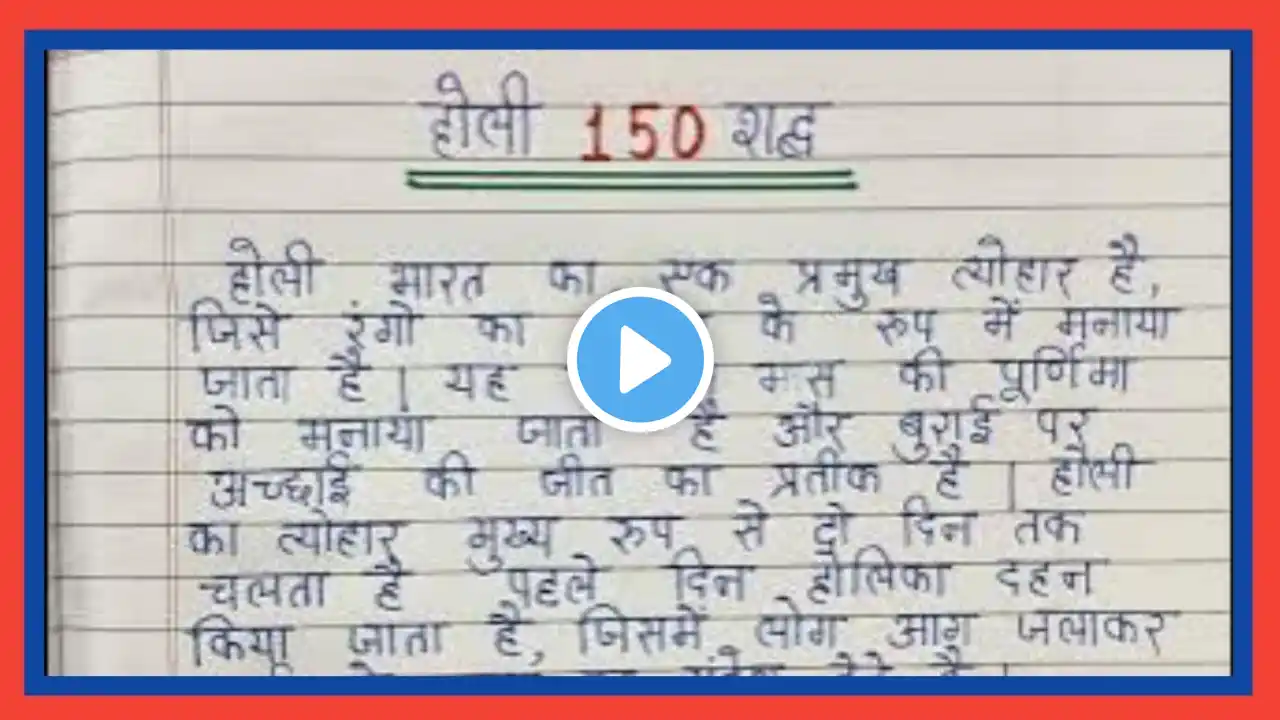 होली 150 शब्द
होली भारत का एक प्रमुख त्योहार है,
जिसे रंगो का के रुप में मनाया
जाता है । यह मास की पूर्णिमा
को मनाया जाता है और बुराई पर
अच्छाई की जीत का प्रतीक है । होली
का त्योहार मुख्य रुप से दो दिन तक
चलता है पहले दिन होलिका दहन
किया जाता है, जिसमें लोग आग जलाकर